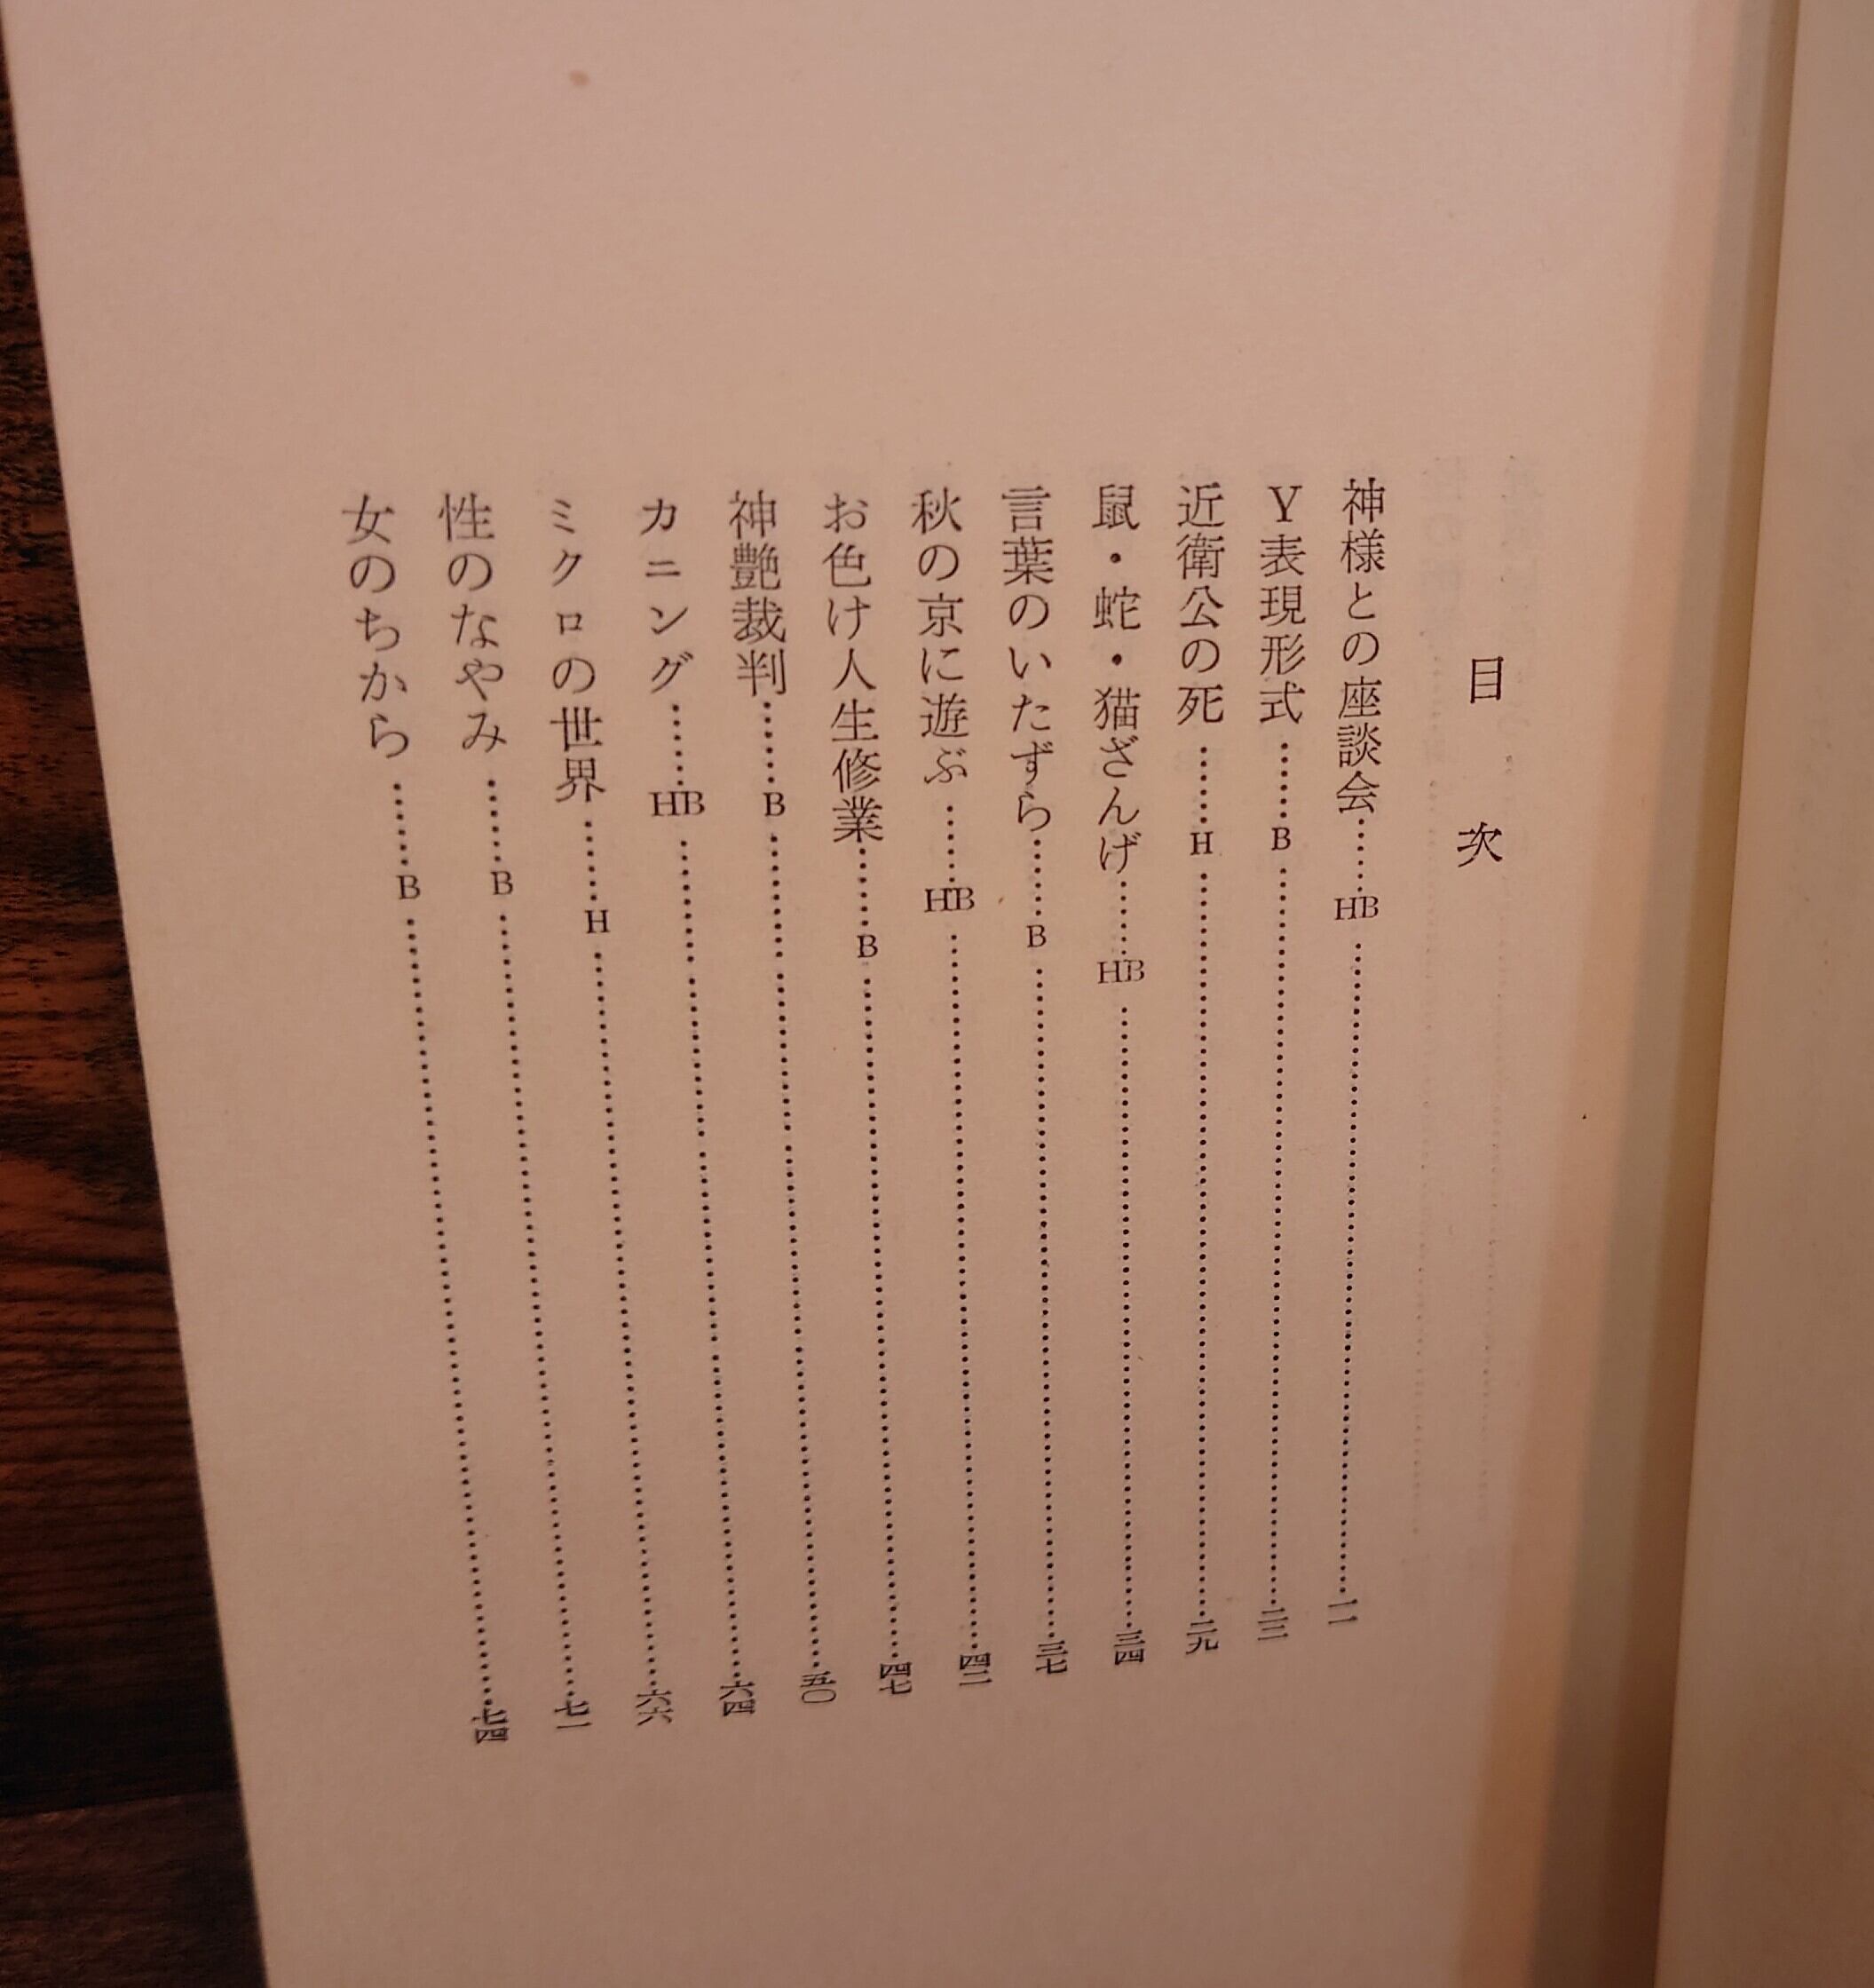 目次
神様との座談会……HB……一一
Y表現形式……B……二二
近衛公の死……H……二九
鼠・蛇・猫ざんげ……HB……三四
言葉のいたずら……B……三七
秋の京に遊ぶ……HB……四二
お色け人生修業……B……四七
神艶裁判……B……五〇
カニング……HB……六四
ミクロの世界……H……六六
性のなやみ……B……七一
女のちから……B……七四